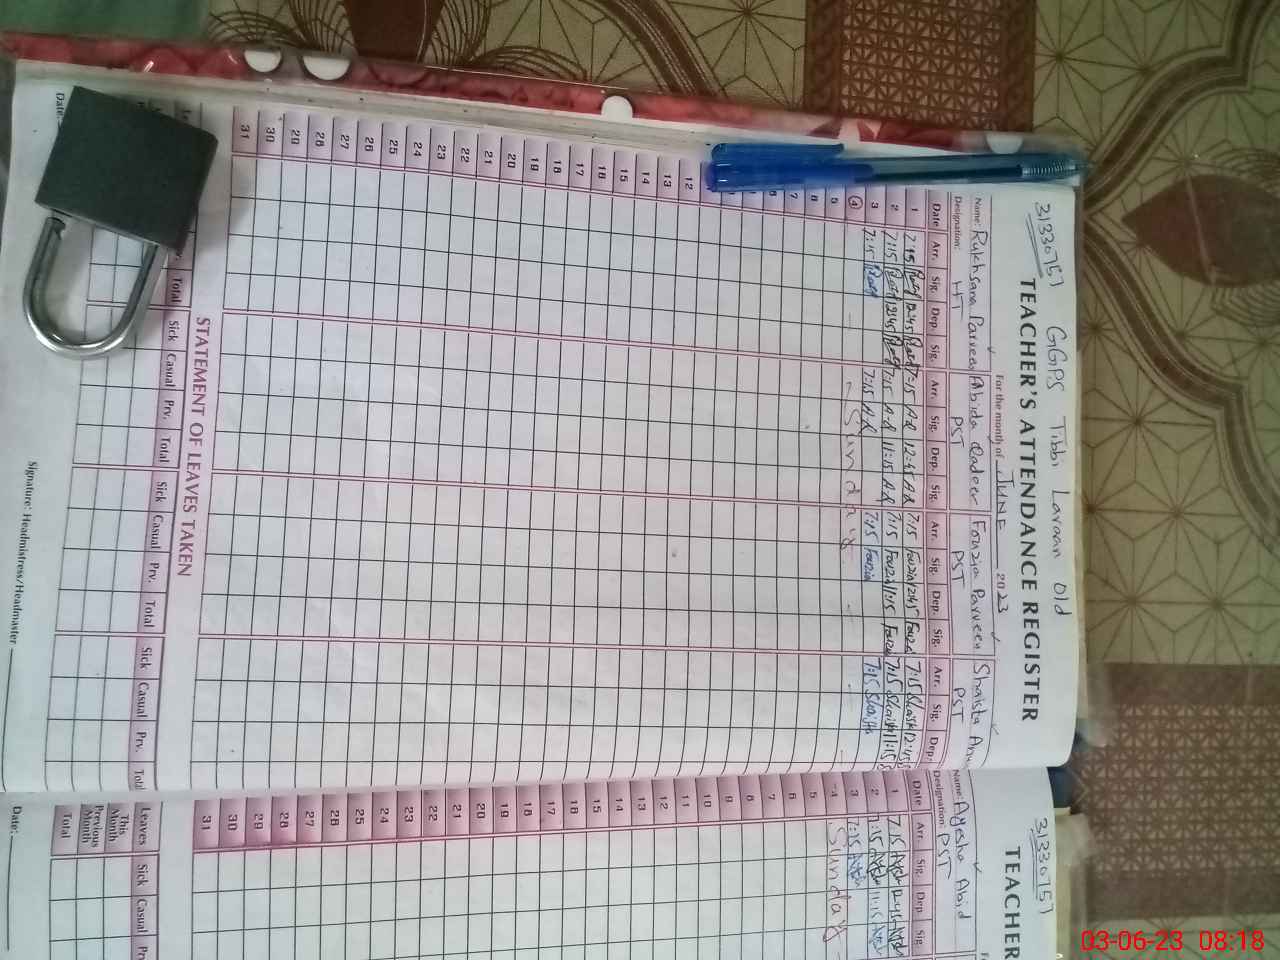 31330757 GGPS Tibbi Laraan old
TEACHER'S ATTENDANCE REGISTER
For the month of JUNE 2023
Name: Rukhsana Parveen Abida Qadeer Fouzia Parveen Shaista
Designation: HT PST PST PST
Date Arr. Sig. Dep. Sig. Arr. Sig. Dep. Sig. Arr. Sig. Dep. Sig. Arr. Sig. Dep.
1 7:15 12:45 7:15 A.Q 12:45 A.Q 7:15 Fouzia 12:45 Fouzia 7:15 Shaista 12:45
2 7:15 7:15 A.Q 11:15 A.Q 7:15 Fouzia 11:15 Fouzia 7:15 Shaista 11:15
3 7:15 7:15 A.Q 7:15 Fouzia 7:15 Shaista
4 - Sunday -
5
6
7
8
12
13
14
15
16
17
18
19
20
21
22
23
24
25
26
27
28
29
30
31
STATEMENT OF LEAVES TAKEN
Total Sick Casual Prv. Total Sick Casual Prv. Total Sick Casual Prv. Total
Date:
Signature: Headmistress/Headmaster
31330757
TEACHER
Name: Ayesha Abid
Designation: PST
Date Arr. Sig. Dep. Sig.
1 7:15 12:45
2 7:15 11:15
3 7:15
4 Sunday
5
6
7
8
9
10
11
12
13
14
15
16
17
18
19
20
21
22
23
24
25
26
27
28
29
30
31
Leaves Sick Casual
This Month
Previous Month
Total
Date:
03-06-23 08:18